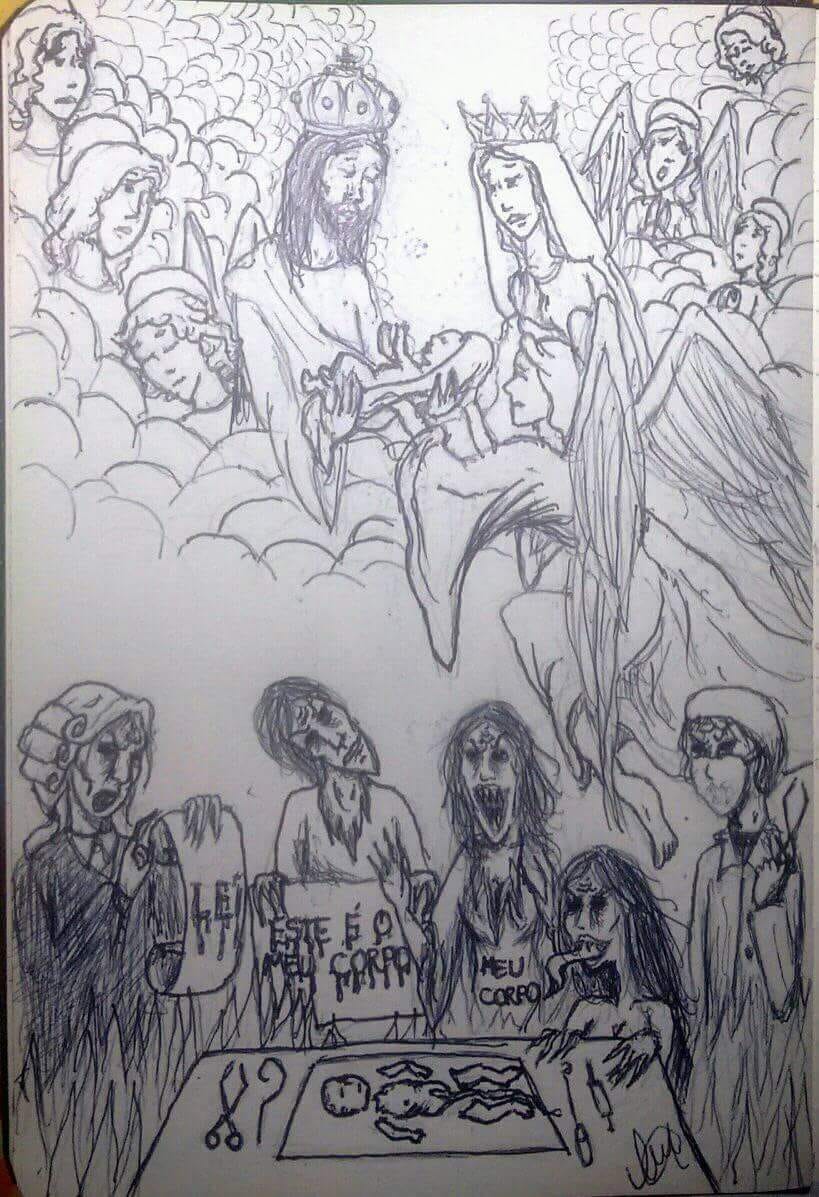 LEI
ESTE É O
MEU CORPO
MEU
CORPO